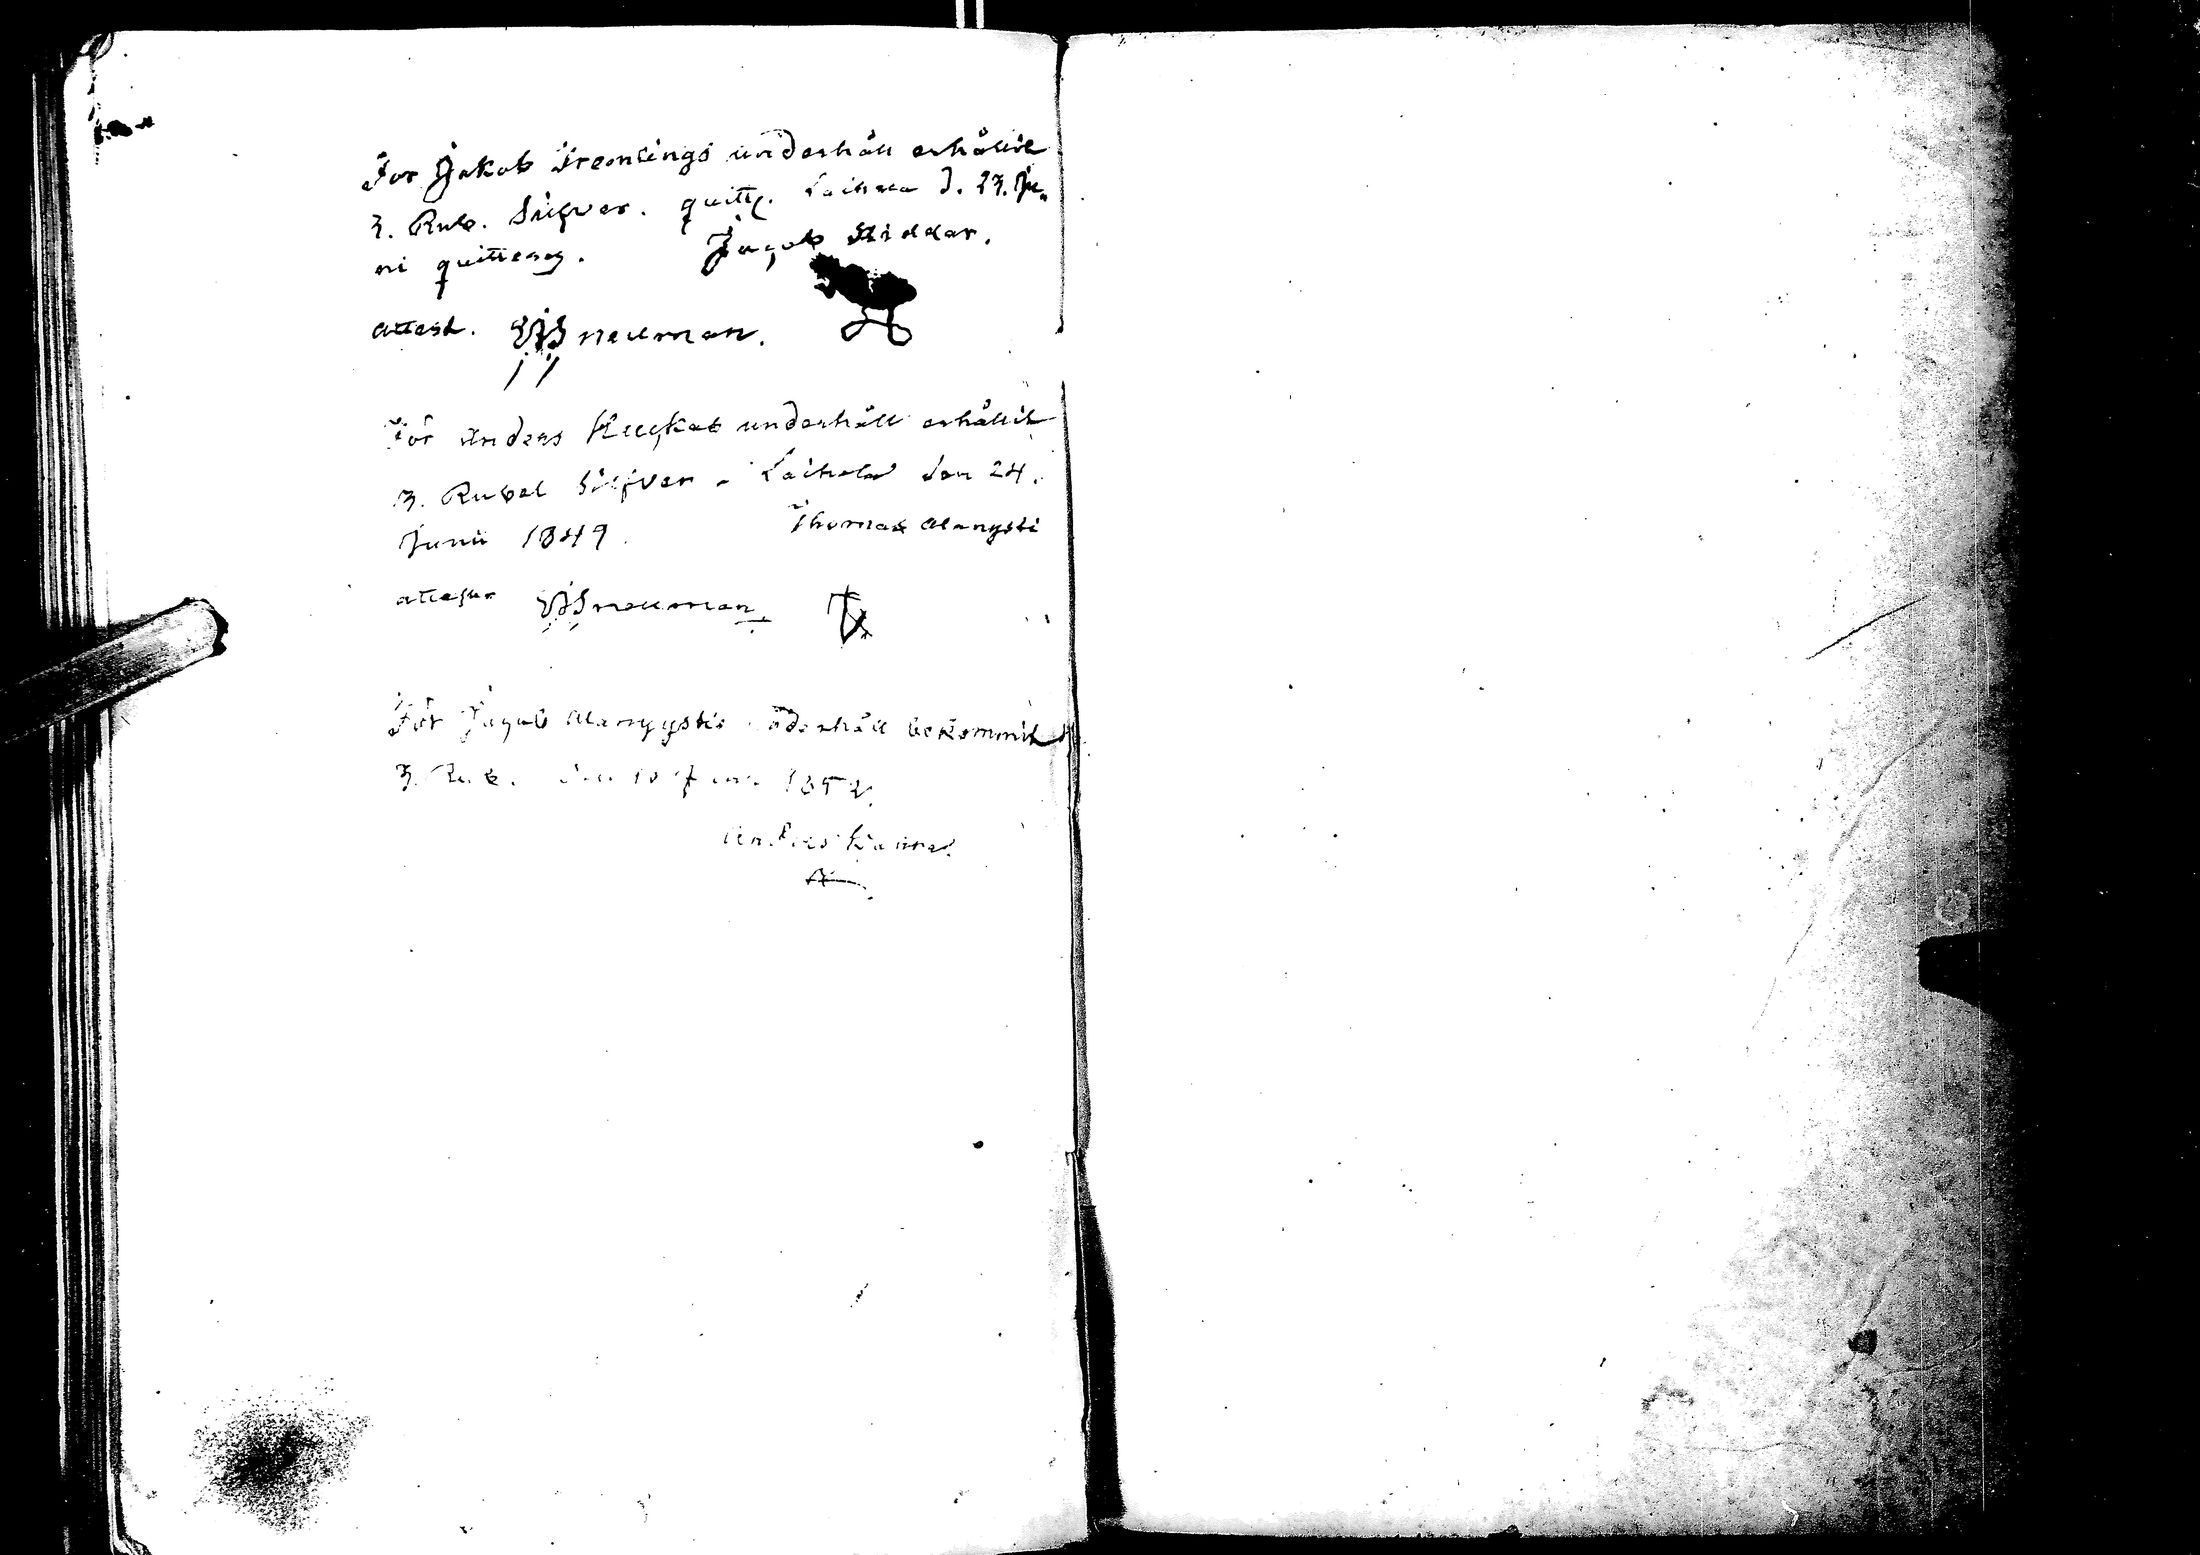 För Jakob Strömlings underhåll erhållit
3. Rub. Silfver. quitt. Laihela d. 23. Ju-
ni quitteras. Jacob Riddar.
attest. neuman.
För Anders underhåll erhållit
3. Rubel Silfver. Laihela den 24.
Junii 1849. Thomas Alanysti
attester neuman
För Jacob Alanysti underhåll bekommit
3. Rub. den 10 Juni 1852.
Anders